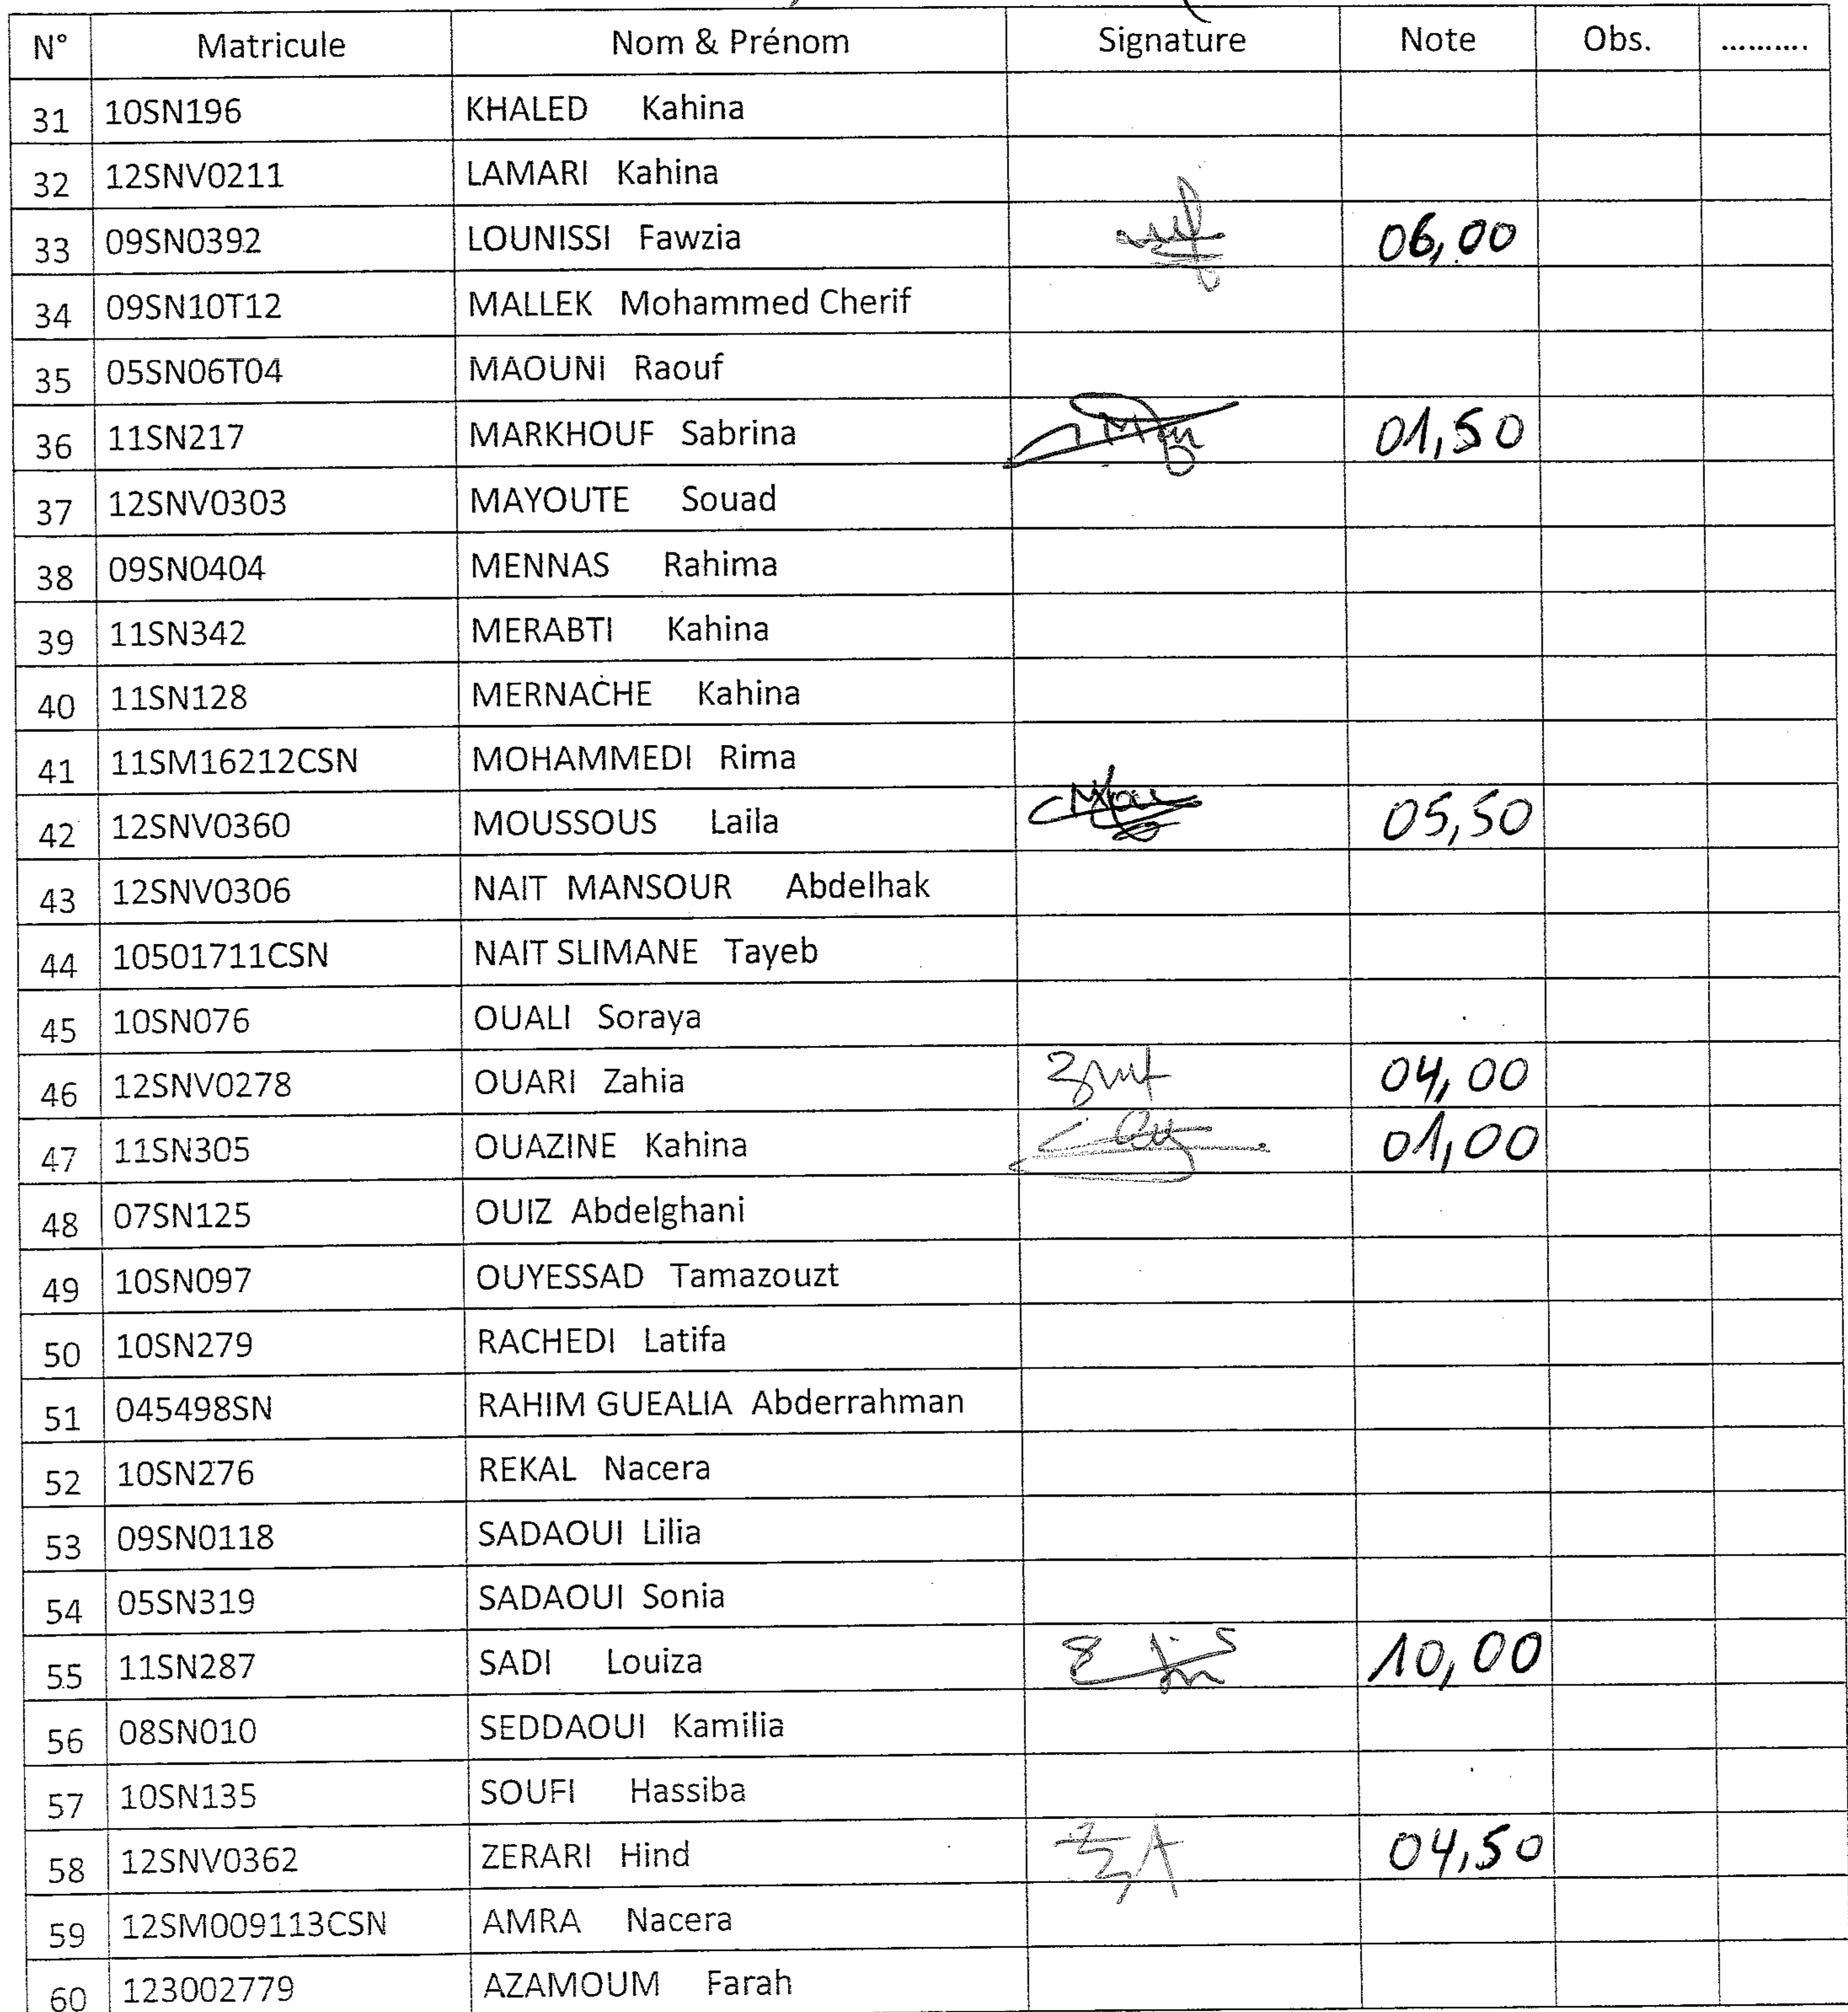 N° Matricule Nom & Prénom Signature Note Obs. ..........
31 10SN196 KHALED Kahina
32 12SNV0211 LAMARI Kahina
33 09SN0392 LOUNISSI Fawzia 06,00
34 09SN10T12 MALLEK Mohammed Cherif
35 05SN06T04 MAOUNI Raouf
36 11SN217 MARKHOUF Sabrina 01,50
37 12SNV0303 MAYOUTE Souad
38 09SN0404 MENNAS Rahima
39 11SN342 MERABTI Kahina
40 11SN128 MERNACHE Kahina
41 11SM16212CSN MOHAMMEDI Rima
42 12SNV0360 MOUSSOUS Laila 05,50
43 12SNV0306 NAIT MANSOUR Abdelhak
44 10501711CSN NAIT SLIMANE Tayeb
45 10SN076 OUALI Soraya
46 12SNV0278 OUARI Zahia 04,00
47 11SN305 OUAZINE Kahina 01,00
48 07SN125 OUIZ Abdelghani
49 10SN097 OUYESSAD Tamazouzt
50 10SN279 RACHEDI Latifa
51 045498SN RAHIM GUEALIA Abderrahman
52 10SN276 REKAL Nacera
53 09SN0118 SADAOUI Lilia
54 05SN319 SADAOUI Sonia
55 11SN287 SADI Louiza 10,00
56 08SN010 SEDDAOUI Kamilia
57 10SN135 SOUFI Hassiba
58 12SNV0362 ZERARI Hind 04,50
59 12SM009113CSN AMRA Nacera
60 123002779 AZAMOUM Farah